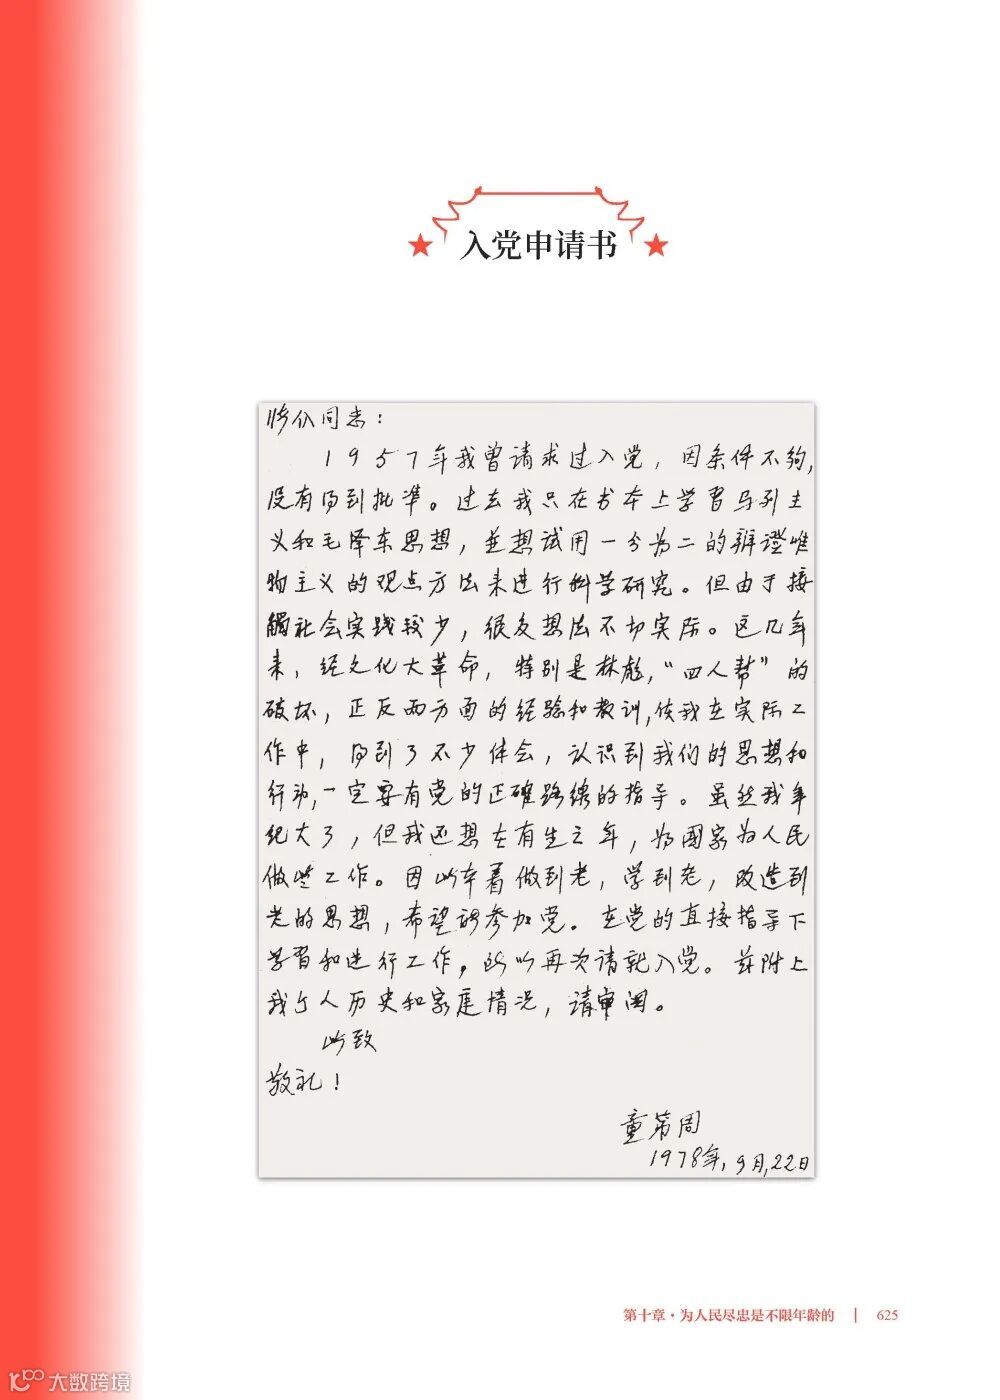 入党申请书
同志：
1957年我曾请求过入党，因条件不夠，
没有得到批準。过去我只在书本上学習马列主
义和毛泽东思想，並想试用一分为二的辨證唯
物主义的观点方法来进行科学研究。但由于接
觸社会实践较少，很多想法不切实际。这几年
来，经文化大革命，特别是林彪，“四人帮”的
破坏，正反两方面的经验和教训，使我在实际工
作中，得到了不少体会，认识到我们的思想和
行动，一定要有党的正确路线的指导。虽然我年
纪大了，但我还想在有生之年，为國家为人民
做些工作。因此本着做到老，学到老，改造到
老的思想，希望能参加党。在党的直接指导下
学習和进行工作，所以再次请求入党。兹附上
我个人历史和家庭情况，请审阅。
此致
敬礼！
童第周
1978年，9月，22日
第十章·为人民尽忠是不限年龄的 | 625
大数跨境